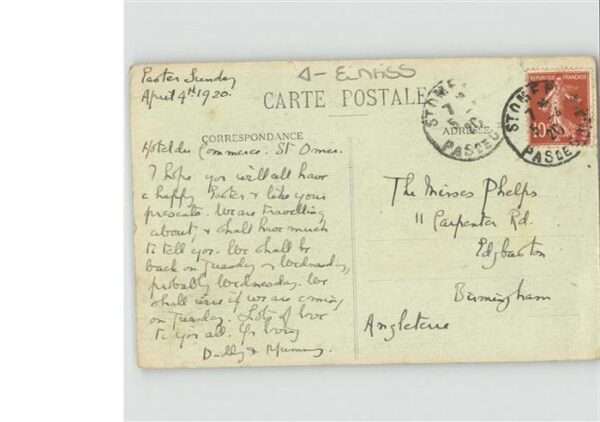 Easter Sunday
April 4th 1920.
CARTE POSTALE
CORRESPONDANCE
ADRESSE
Hotel du Commerce. St Omer.
I hope you will all have
a happy Easter & like your
presents. We are travelling
about, & shall have much
to tell you. We shall be
back on Tuesday or Wednesday,
probably Wednesday. We
shall wire if we are coming
on Tuesday. Lots of love
to you all. Yr loving
Daddy & Mummy.
The Misses Phelps
11 Carpenter Rd.
Edgbaston
Birmingham
Angleterre
REPUBLIQUE FRANÇAISE
10
ST OMER
PAS DE C
ST OMER
PAS DE C